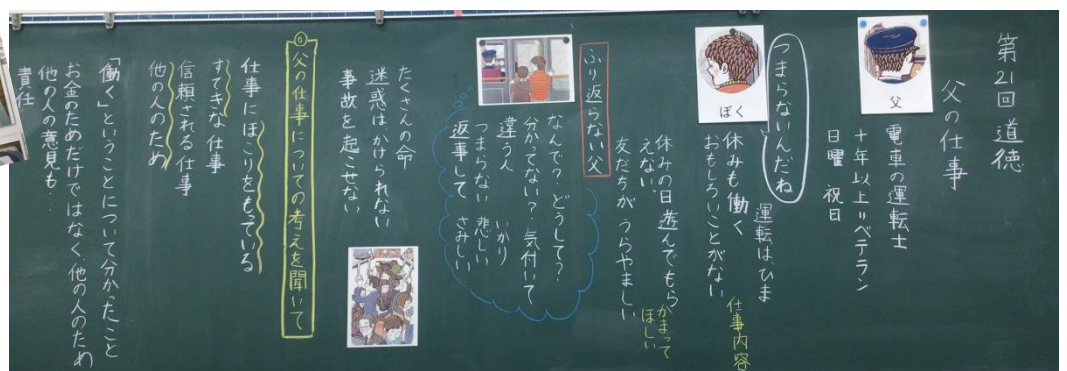 第21回 道徳
父の仕事
父
電車の運転士
十年以上 ベテラン
日曜 祝日
つまらないんだね
ぼく
運転は、ひま
仕事内容
休みも働く
おもしろいことがない
休みの日 遊んでもらえない
かまってほしい
友だちが うらやましい
ふり返らない父
なんで？どうして？
分かってない？気付いて
違う人 いかり
つまらない 悲しい
返事して さみしい
たくさんの命
迷惑は かけられない
事故を起こせない
◎父の仕事についての考えを聞いて
仕事にほこりをもっている
すてきな仕事
信頼される仕事
他の人のため
「働く」ということについて分かったこと
お金のためだけではなく、他の人のため
他の人の意見も…
責任